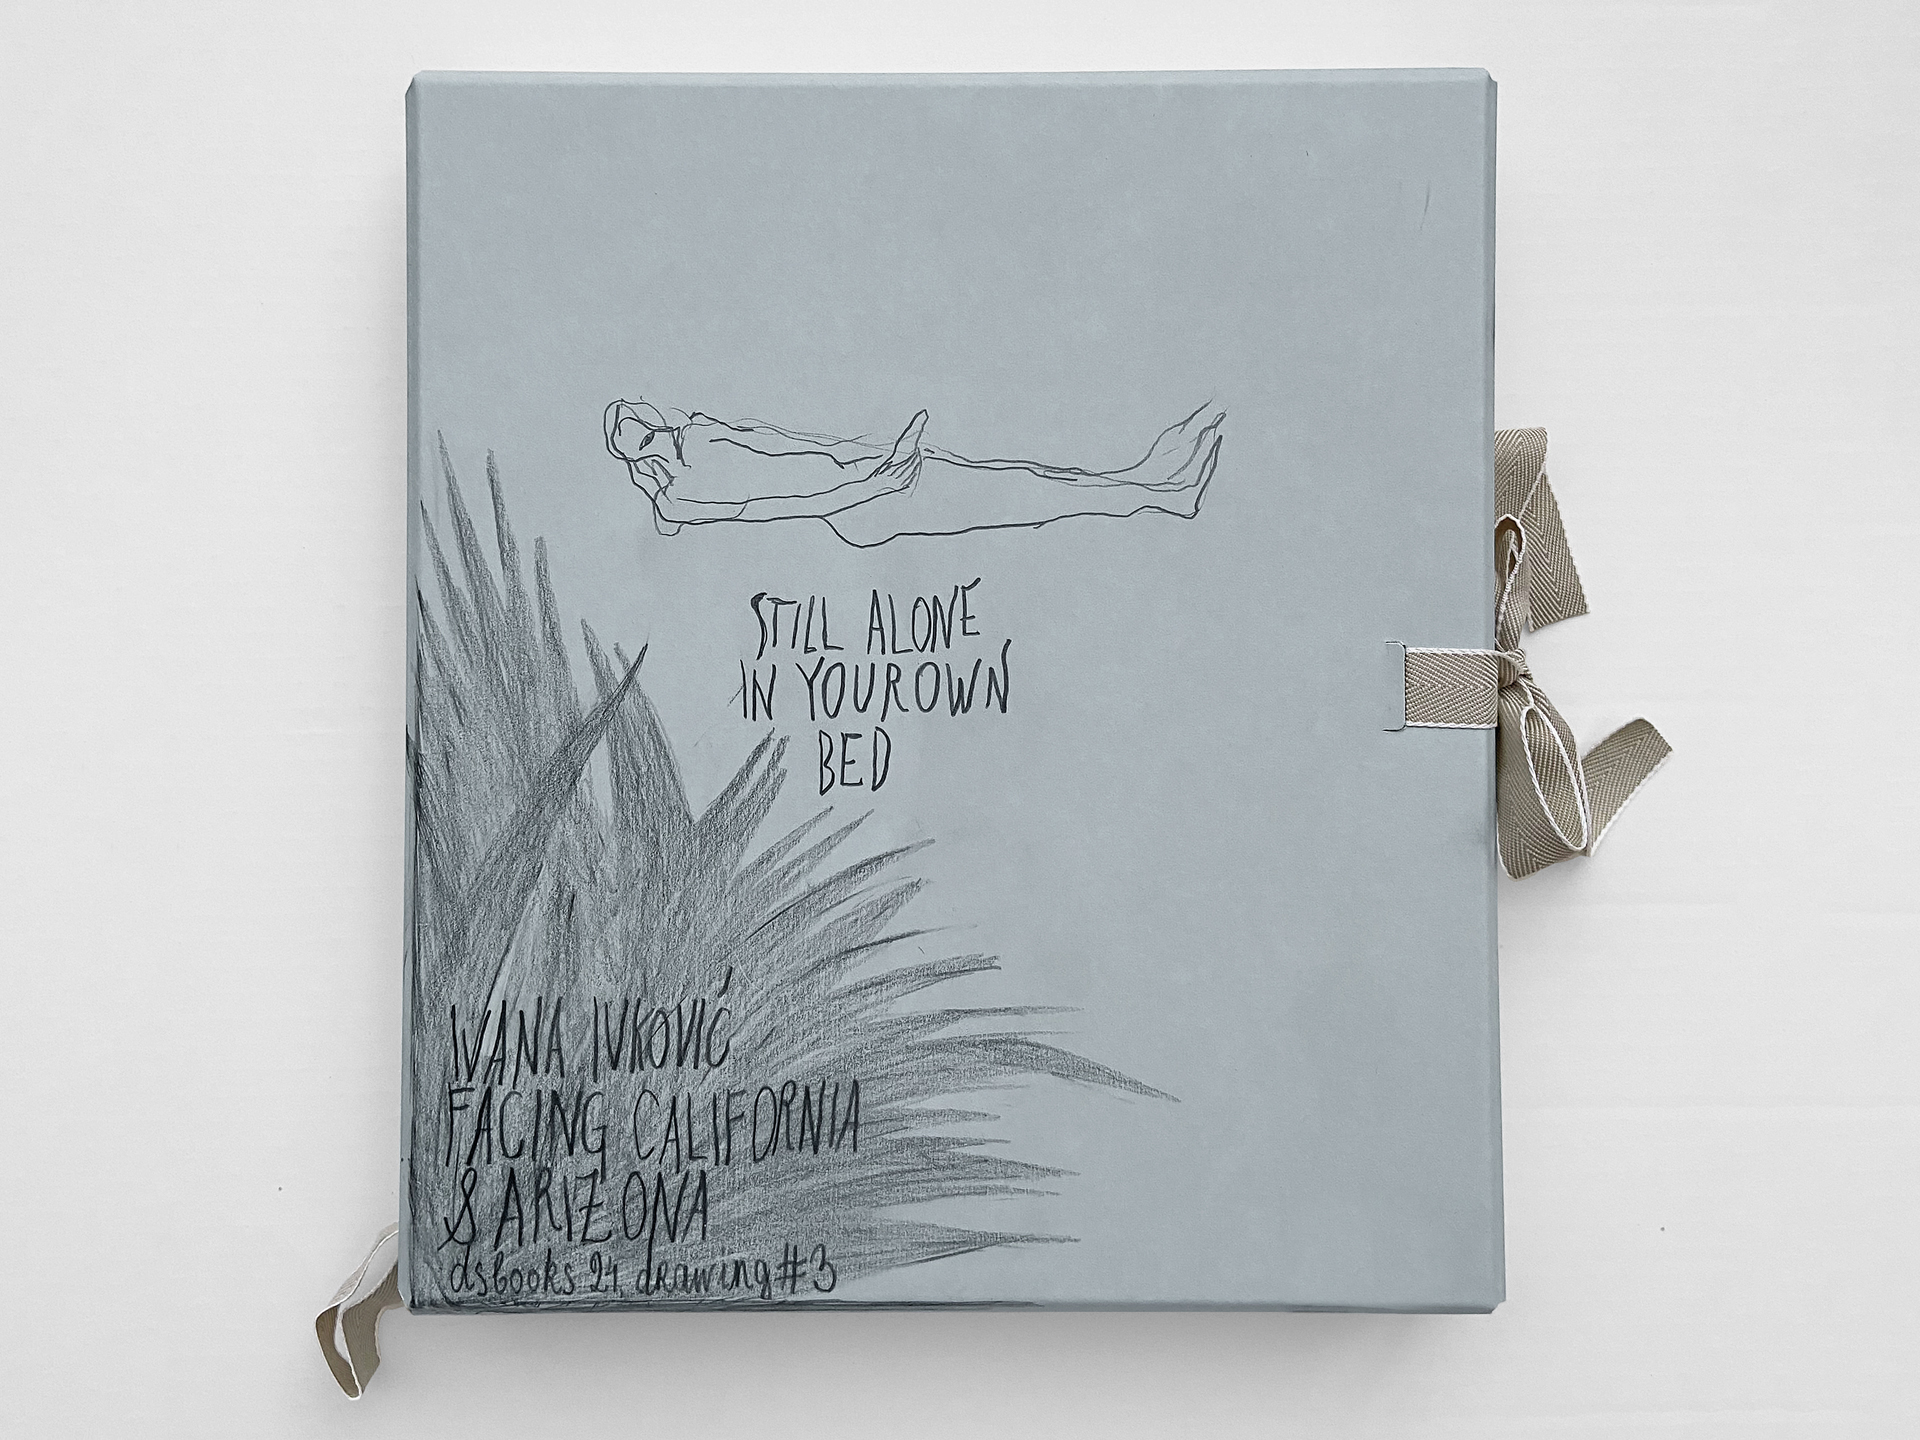 STILL ALONE
IN YOUR OWN
BED
IVANA IVKOVIĆ
FACING CALIFORNIA
& ARIZONA
dsbooks 24, drawing #3